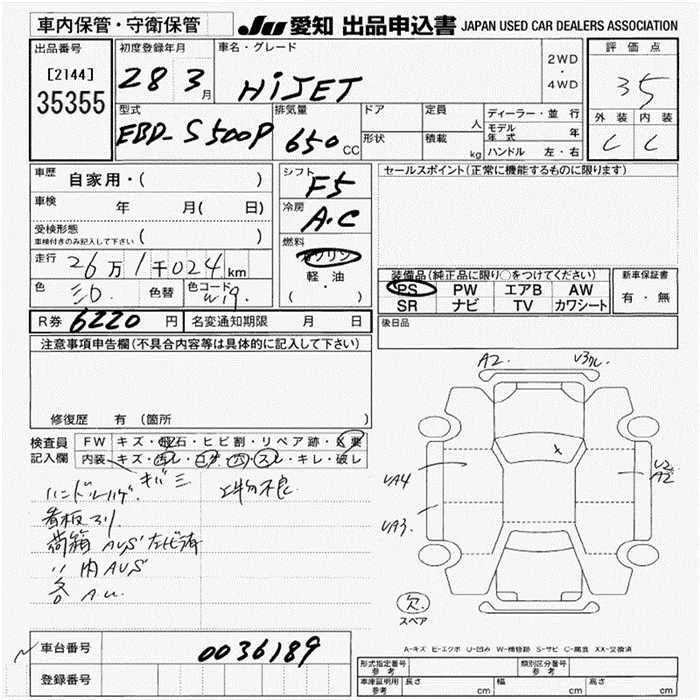 車内保管・守衛保管
JU 愛知 出品申込書 JAPAN USED CAR DEALERS ASSOCIATION
出品番号
[2144]
35355
初度登録年月
28 3月
車名・グレード
HiJET
2WD
・
4WD
評価点
35
外装 内装
C C
型式
EBD-S500P
排気量
650 CC
ドア
形状
定員
人
積載
kg
ディーラー・並行
モデル年式 年
ハンドル 左・右
車歴
自家用・( )
車検
年 月( 日)
受検形態
車検付きのみ記入して下さい ( )
走行
26万1千024km
色
色替
色コード
W19.
シフト
F5
冷房
A・C
燃料
ガソリン
軽・油
( ・ )
セールスポイント(正常に機能するものに限ります)
装備品(純正品に限り○をつけてください)
PS PW エアB AW
SR ナビ TV カワシート
新車保証書
有・無
後日品
R券 6220 円
名変通知期限 月 日
注意事項申告欄(不具合内容等は具体的に記入して下さい)
修復歴 有 (箇所 )
検査員記入欄
FW キズ・飛石・ヒビ割・リペア跡・X要
内装 キズ・汚レ・コゲ・穴・スレ・キレ・破レ
キバミ
ハンドルハゲ.
看板マリ
荷箱 AUS
〃 内 AUS
各 A.u.
A2.
V3
UA4
UA3.
U2
A2
欠.
スペア
A-キズ E-エクボ U-凹み W-補修跡 S-サビ C-腐食 XX-交換済
車台番号
0036189
登録番号
形式指定番号 参考
類別区分番号 参考
車庫証明用 参考
長さ cm
幅 cm
高さ cm